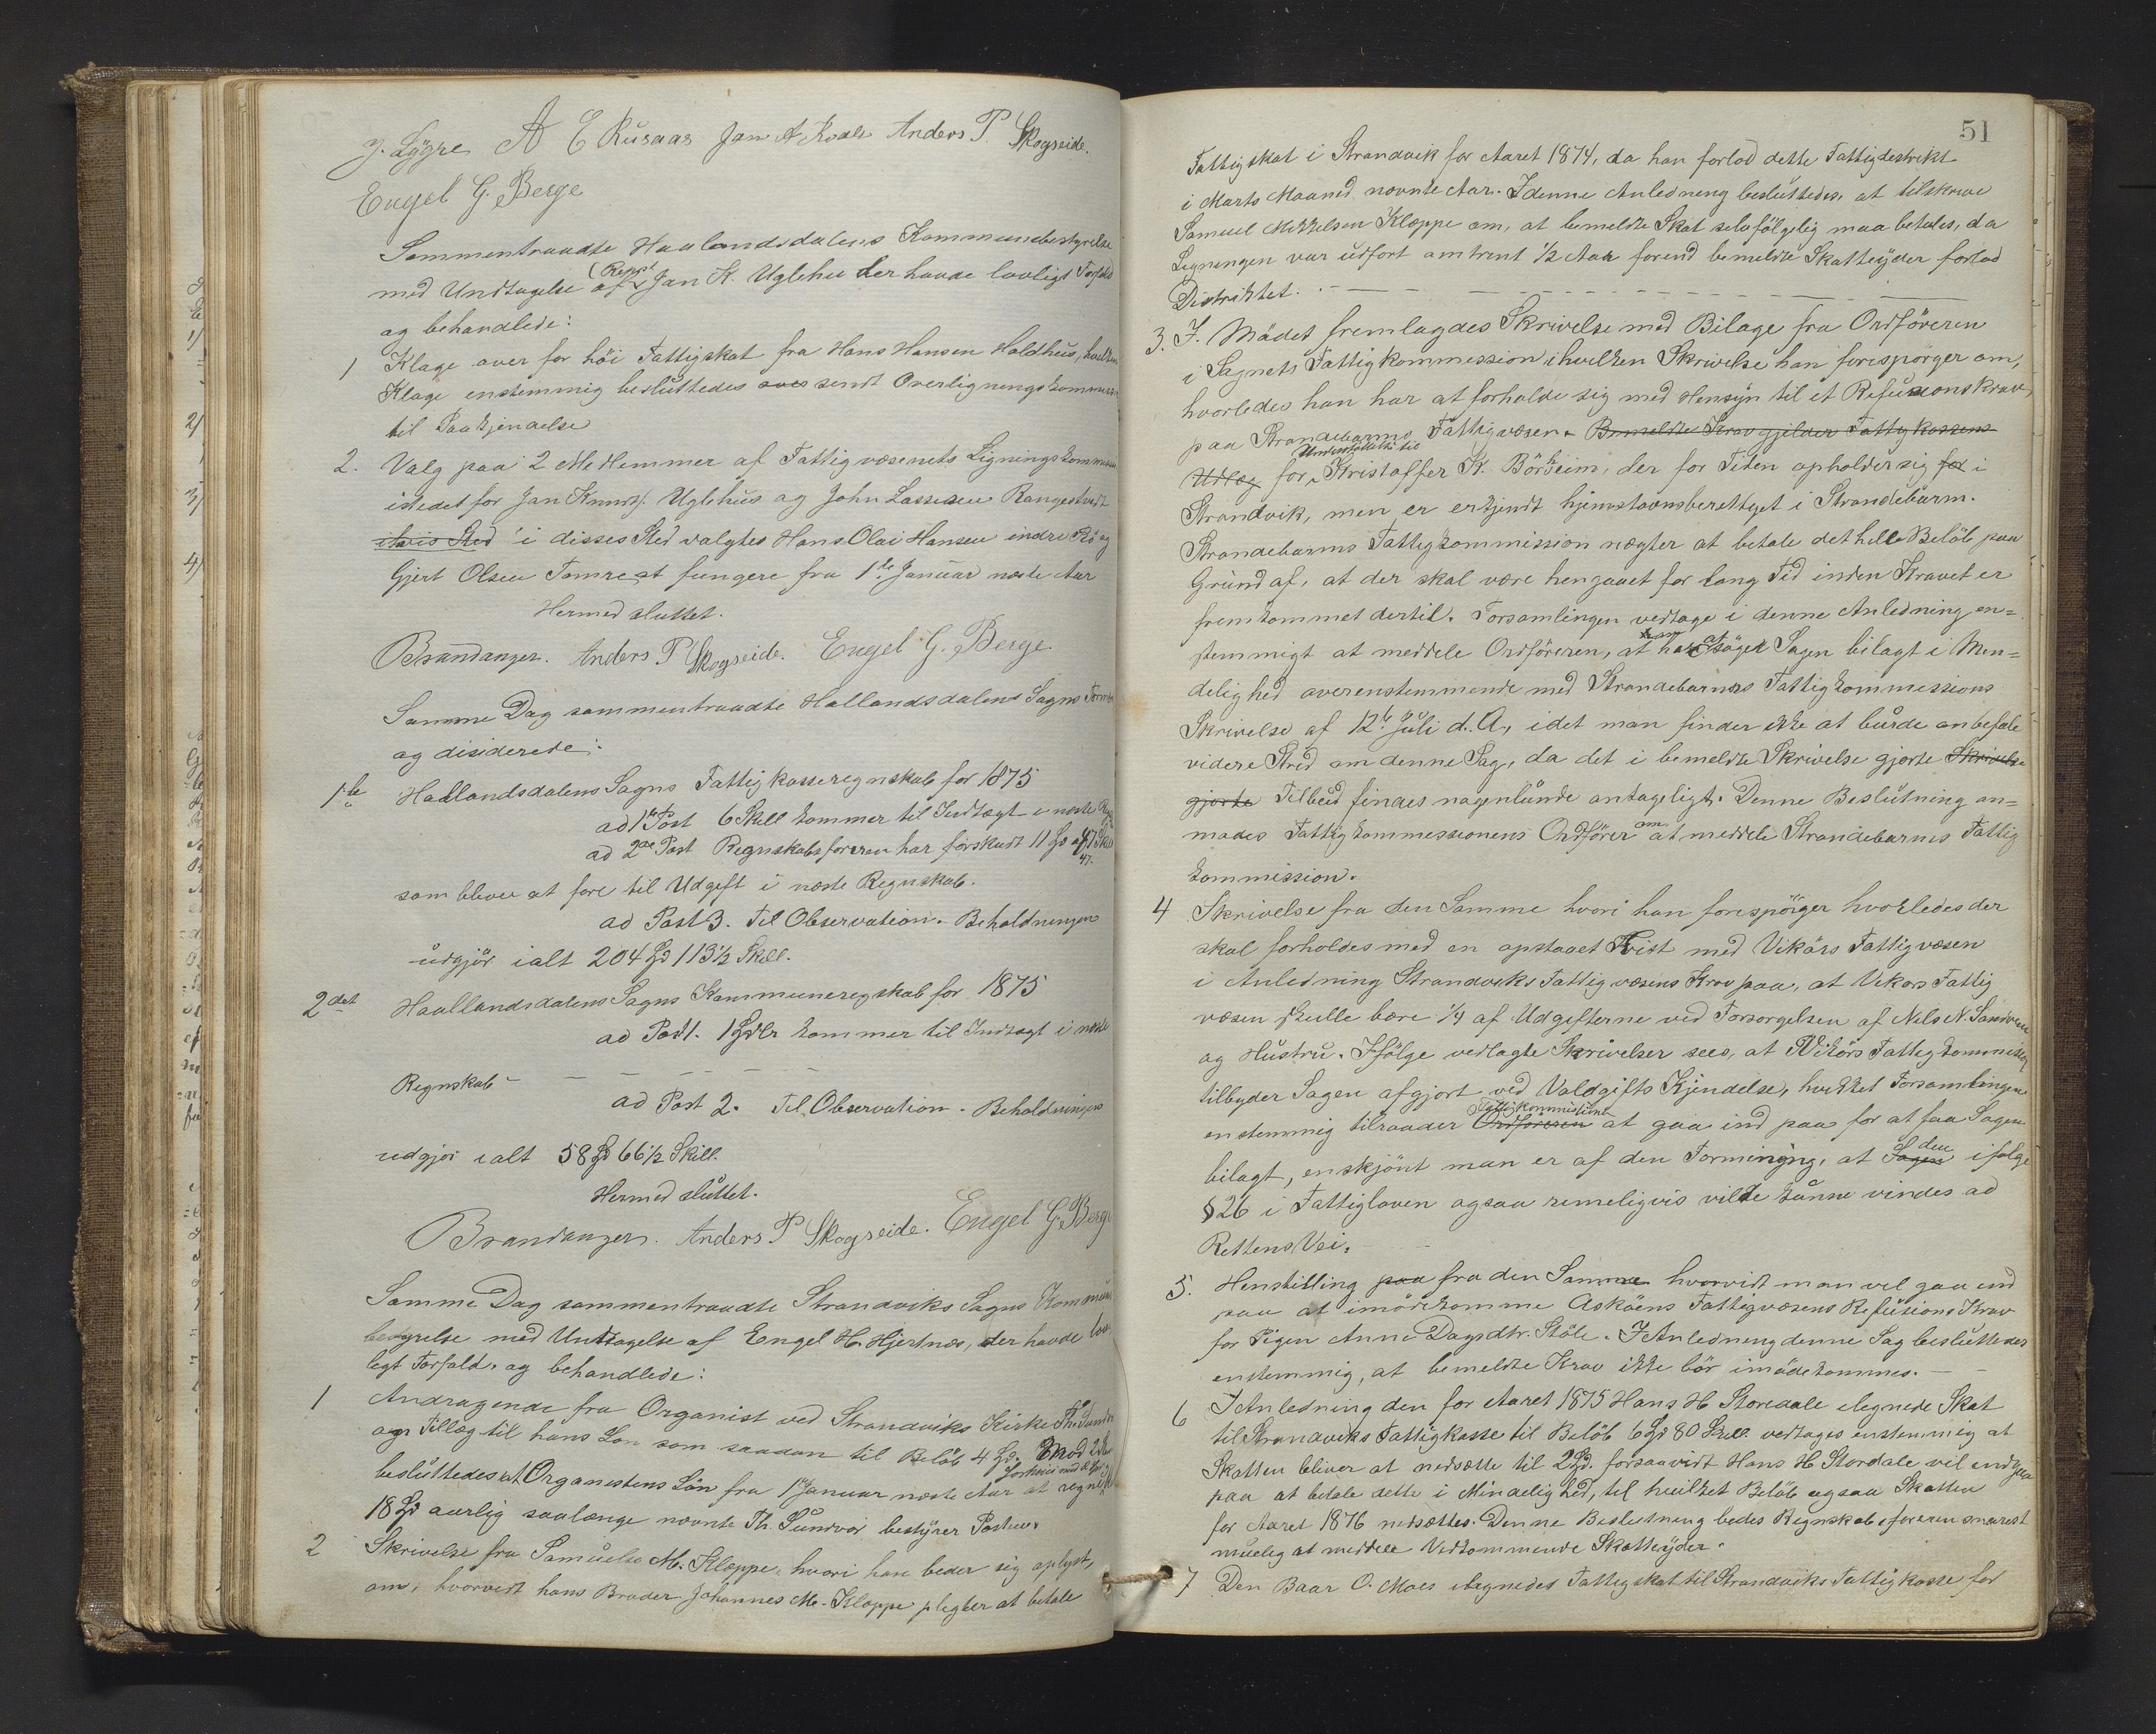 J. Lygre A E Rusaas Jan A Kvale Anders P. Skogseide.
Engel G. Berge
Sammentraadte Haalandsdalens Kommunebestyrelse
med Undtagelse af (Repst Jan K. Uglehu der havde lovligt Forfald
og behandlede:
1 Klage over for höi Fattigskat fra Hans Hansen Holdhus, hvilken
Klage enstemmig besluttedes sendt Overligningskommissi
til Paakjendelse
2. Valg paa 2 Medlemmer af Fattigvæsenets Ligningskommission
istedet for Jan Knuds. Uglehus og John Lassesen Rangestvedt
i hvis Sted i disses Sted valgtes Hans Olai Hansen indre Bö og
Gjert Olsen Tomre at fungere fra 1ste Januar næste Aar
Hermed sluttet.
Brandanger. Anders P Skogseide. Engel G. Berge
Samme Dag sammentraadte Hallandsdalens Sogns Form
og disiderede:
1ste Hallandsdalens Sogns Fattigkasseregnskab for 1875
ad 1ste Post 6 Skill kommer til Indtægt i næste Regn
ad 2den Post Regnskabsføreren har forskudt 11 Spd og 47 Skill
47.
som bliver at føre til Udgift i næste Regnskab.
ad Post 3. Til Observation. Beholdningen
udgjör ialt 204 Spd 113½ Skill.
2det Haallandsdalens Sogns Kommuneregskab for 1875
ad Post 1. 1 Spdlr kommer til Indtægt i næste
Regnskab -
ad Post 2. Til Observation. Beholdningen
udgjör ialt 58 Spd 66½ Skill.
Hermed sluttet.
Brandanger. Anders P Skogseide. Engel G. Berge
Samme Dag sammentraadte Strandviks Sogns Kommune
bestyrelse med Undtagelse af Engel H. Hjertnes, der havde lov
ligt Forfald, og behandlede:
1 Andragende fra Organist ved Strandviks Kirke Th. Sundvor
om Tillæg til hans Løn som saadan til Beløb 4 Spd. Mod 2
besluttedes at Organistens Lön fra 1ste Januar næste Aar at regne
18 Spd aarlig saalænge nævnte Th. Sundvor bestyrer Posten.
2 Skrivelse fra Samuels M. Kleppe, hvori han beder sig oplyst,
om, hvorvidt hans Broder Johannes M. Kleppe pligter at betale
51
Fattigskat i Strandvik for Aaret 1874, da han forlod dette Fattigdestrikt
i Marts Maaned nævnte Aar. I denne Anledning besluttedes, at tilskrive
Samuel Mikkelsen Kleppe om, at bemeldte Skat selvfölgelig maa betales, da
Ligningen var udført omtrent ½ Aar førend bemeldte Skatteyder forlod
Distriktet.
3. I Mödet fremlagdes Skrivelse med Bilage fra Ordföreren
i Sognets Fattigkommission i hvilken Skrivelse han forespörger om,
hvorledes han har at forholde sig med Hensyn til et Refusionskrav
paa Strandebarms Fattigvæsen. Bemeldte Krav gjelder Fattigkassens
Understöttelse til
Udlæg for Kristoffer K. Börsheim, der for Tiden opholder sig for i
Strandvik, men er erkjendt hjemstavnsberettiget i Strandebarm.
Strandebarms Fattigkommission nægter at betale det hele Belöb paa
Grund af, at der skal være hengaaet for lang Tid inden Kravet er
fremkommet dertil. Forsamlingen vedtage i denne Anledning en=
stemmigt at meddele Ordföreren, at han söger Sagen bilagt i Min=
delighed overenstemmende med Strandebarms Fattigkommissions
Skrivelse af 12te Juli d. A., idet man finder ikke at burde anbefale
videre Strid om denne Sag, da det i bemeldte Skrivelse gjorte Skrivelse
gjorte Tilbud findes nogenlunde antageligt. Denne Beslutning an=
modes Fattigkommissionens Ordförer om at meddele Strandebarms Fattig
kommission.
4 Skrivelse fra den Samme hvori han forespörger hvorledes der
skal forholdes med en opstaaet Tvist med Vikörs Fattigvæsen
i Anledning Strandviks Fattigvæsens Krav paa, at Vikørs Fattig
væsen skulle bære ¼ af Udgifterne ved Forsorgelsen af Nils N. Sandven
og Hustru. Ifölge vedlagte Skrivelser sees, at Vikörs Fattigkommission
tilbyder Sagen afgjort ved Voldgifts Kjendelse, hvilket Forsamlingen
enstemmig tilraader Ordföreren Fattigkommissionen at gaa ind paa for at faa Sagen
bilagt, enskjönt man er af den Formening, at Sagen den ifølge
§ 26 i Fattigloven ogsaa rimeligvis vilde kunne vindes ad
Rettens Vei.
5. Henstilling paa fra den Samme hvorvidt man vil gaa ind
paa at imödekomme Asköens Fattigvæsens Refusions Krav
for Pigen Anne Dagsdtr. Stöle. I Anledning denne Sag besluttedes
enstemmig, at bemeldte Krav ikke bör imödekommes.
6 I Anledning den for Aaret 1875 Hans H Storedale ilegnede Skat
til Strandviks Fattigkasse til Belöb 6 Spd 80 Skill. vedtages enstemmig at
Skatten bliver at nedsætte til 2 Spd. forsaavidt Hans H Stordale vil indgaa
paa at betale dette i Mindelighed, til hvilket Belöb ogsaa Skatten
for Aaret 1876 nedsættes. Denne Beslutning bedes Regnskabsføreren snarest
muelig at meddele Vedkommende Skatteyder.
7 Den Baar O. Moes ilegnedes Fattigskat til Strandviks Fattigkasse for